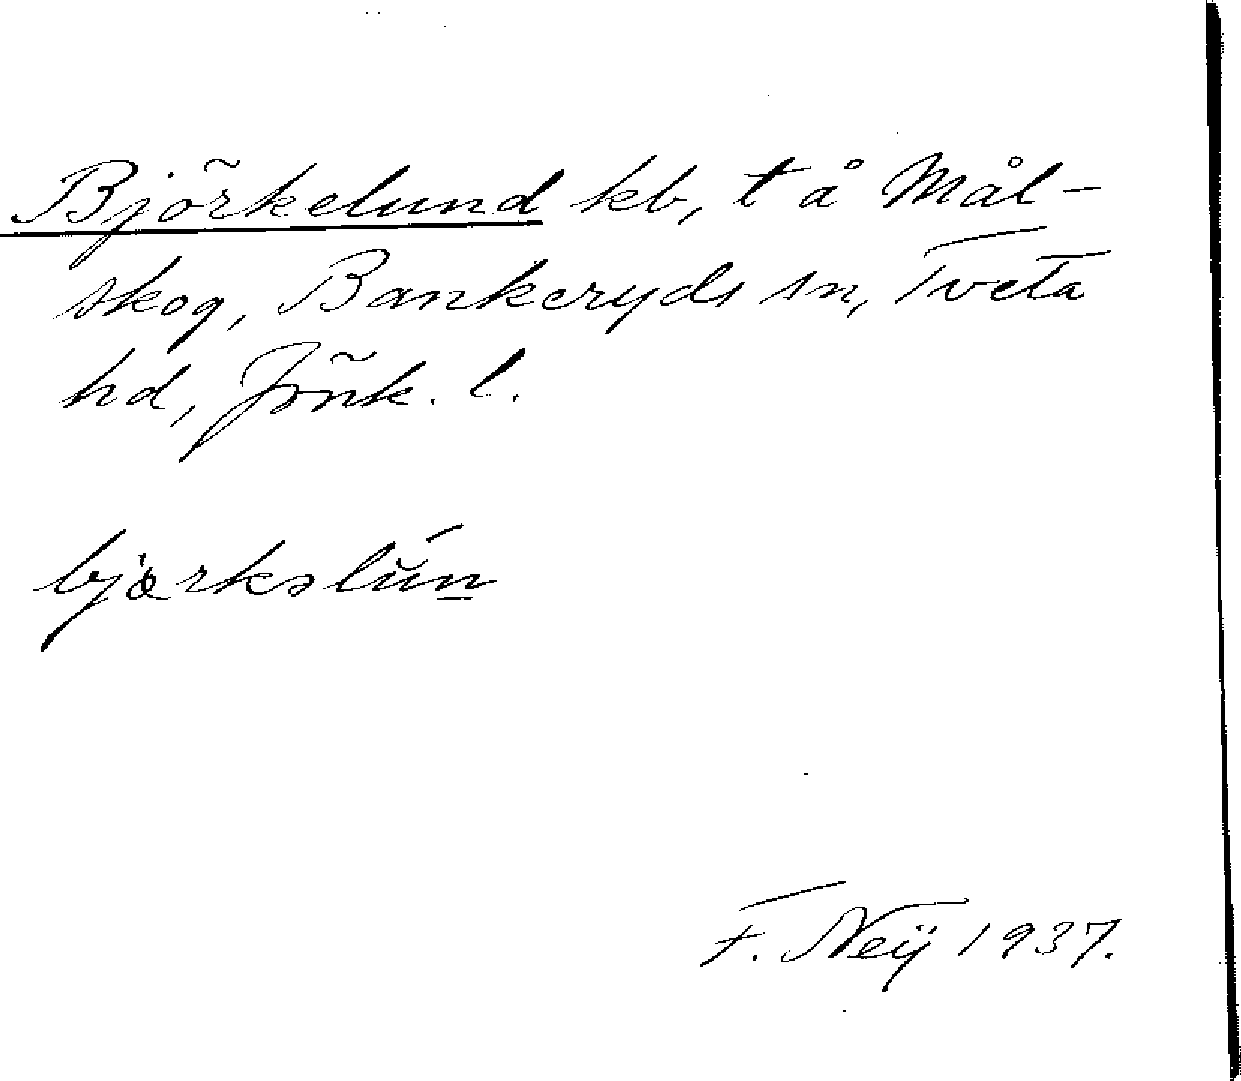 Björkelund kb, t å Mål-
skog, Bankeryds sn, Tveta
hd, Jönk. l.
bjœrkəlún
F. Neÿ 1937.